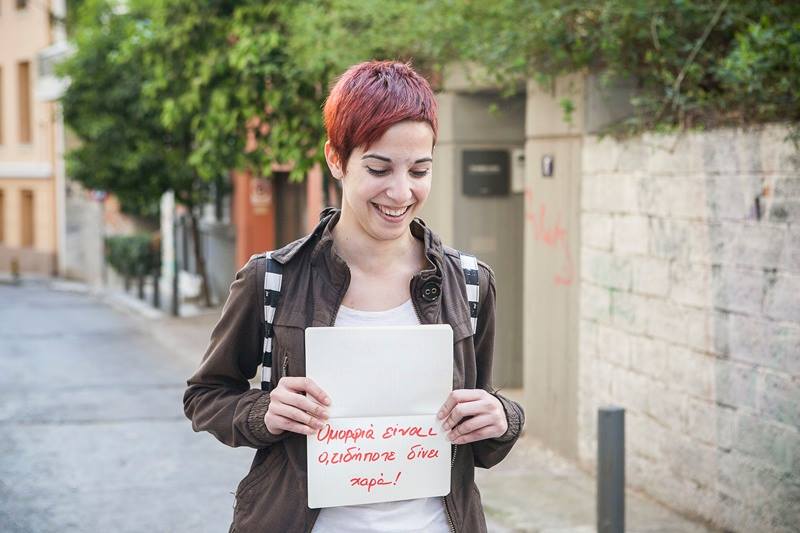 Ομορφιά είναι
ο,τιδήποτε δίνει
χαρά!